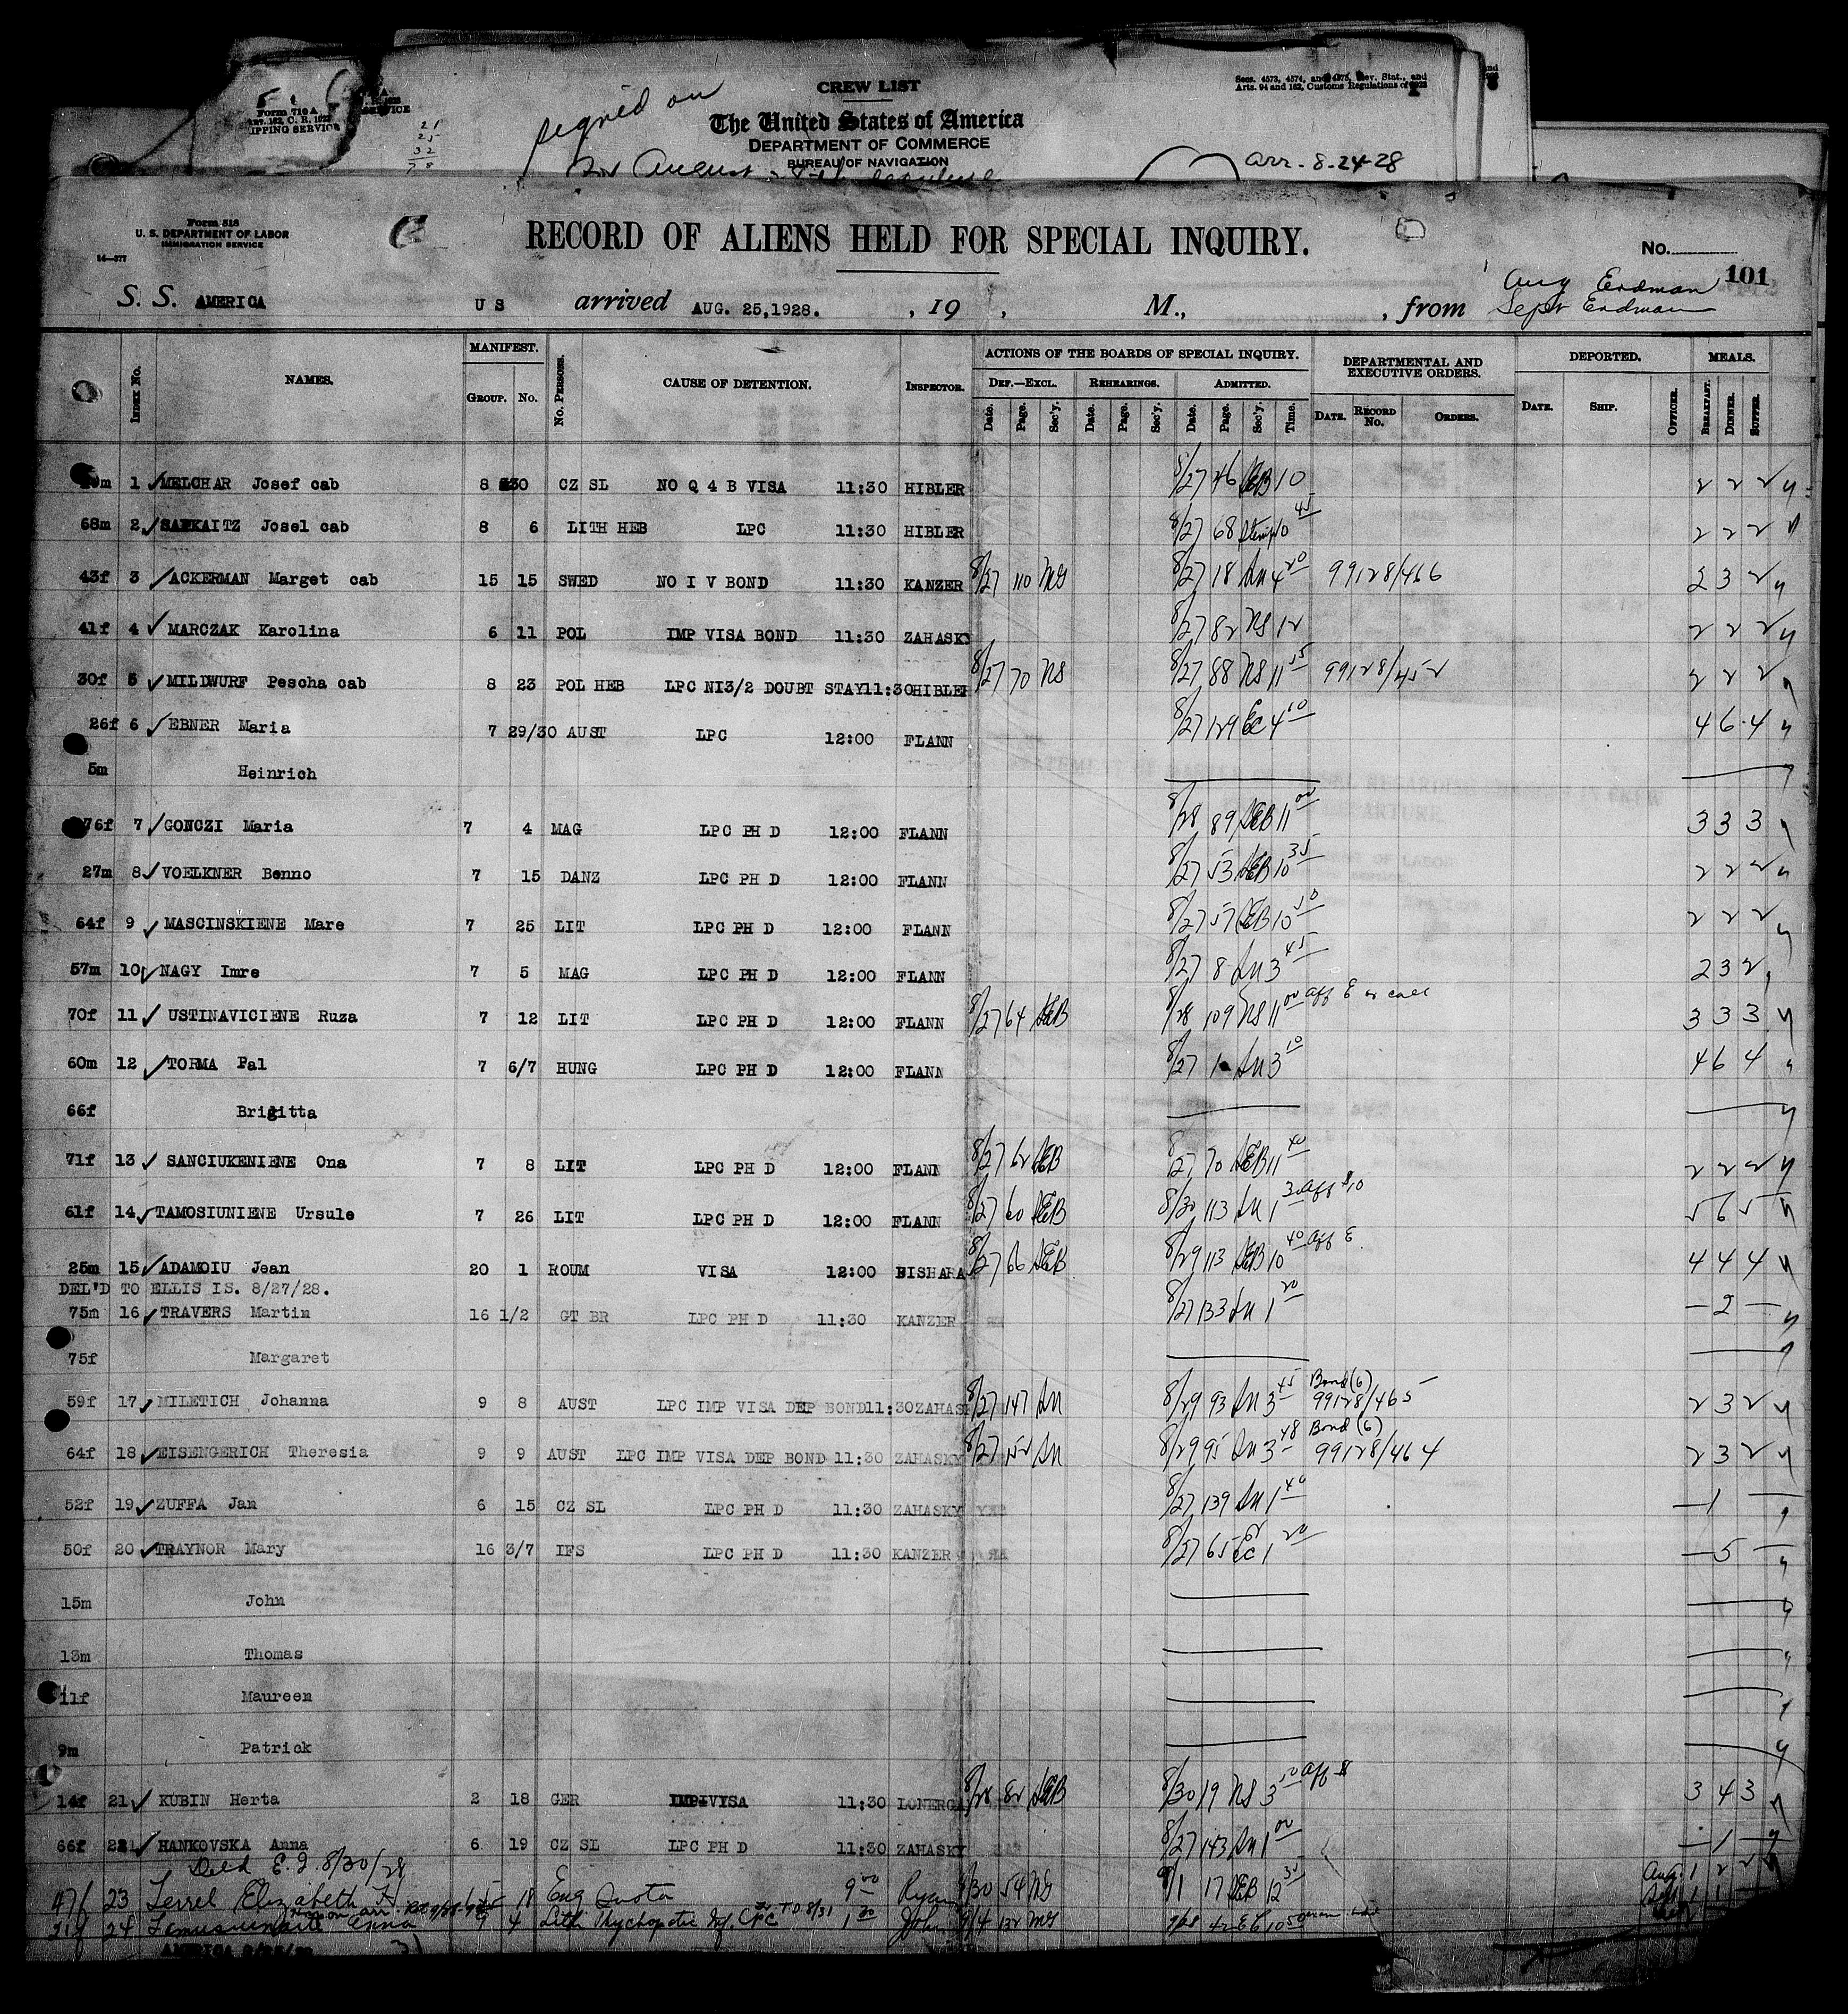 Form 710 A
ART. 162, C. R. 1922
SHIPPING SERVICE
21
25
32
78
signed on
CREW LIST
The United States of America
DEPARTMENT OF COMMERCE
BUREAU OF NAVIGATION
Secs. 4573, 4574, and 4575, Rev. Stat., and
Arts. 94 and 162, Customs Regulations of 1923
arr - 8-24-28
Form 518
U. S. DEPARTMENT OF LABOR
IMMIGRATION SERVICE
14—377
RECORD OF ALIENS HELD FOR SPECIAL INQUIRY.
No. 101
S. S. AMERICA U S arrived AUG. 25,1928. , 19 , M., , from
Aug Erdman
Sept Erdman
INDEX No. NAMES. MANIFEST. GROUP. No. No. PERSONS. CAUSE OF DETENTION. INSPECTOR. ACTIONS OF THE BOARDS OF SPECIAL INQUIRY. DEPARTMENTAL AND EXECUTIVE ORDERS. DEPORTED. MEALS.
DEF.—EXCL. REHEARINGS. ADMITTED.
Date. Page. Sec'y. Date. Page. Sec'y. Date. Page. Sec'y. Time. DATE. RECORD No. ORDERS. DATE. SHIP. OFFICER. BREAKFAST. DINNER. SUPPER.
1 MELCHAR Josef cab 8 30 CZ SL NO Q 4 B VISA 11:30 HIBLER 8/27 46 SEB 10 2 2 2
68m 2 SAPKAITZ Josel cab 8 6 LITH HEB LPC 11:30 HIBLER 8/27 68 10 45 2 2 2
43f 3 ACKERMAN Marget cab 15 15 SWED NO I V BOND 11:30 KANZER 8/27 110 MG 8/27 18 SM 4 20 99128/466 2 3 2
41f 4 MARCZAK Karolina 6 11 POL IMP VISA BOND 11:30 ZAHASKY 8/27 82 NS 12 2 2 2
30f 5 MILDWURF Pescha cab 8 23 POL HEB LPC NI3/2 DOUBT STAY11:30HIBLER 8/27 70 NS 8/27 88 NS 11 55 99128/452 2 2 2
26f 6 EBNER Maria 7 29/30 AUST LPC 12:00 FLANN 8/27 129 EC 4 10 4 6 4
5m Heinrich
76f 7 GONCZI Maria 7 4 MAG LPC PH D 12:00 FLANN 8/28 89 SEB 11 00 3 3 3
27m 8 VOELKNER Benno 7 15 DANZ LPC PH D 12:00 FLANN 8/27 53 SEB 10 35 2 2 2
64f 9 MASCINSKIENE Mare 7 25 LIT LPC PH D 12:00 FLANN 8/27 57 SEB 10 50 2 2 2
57m 10 NAGY Imre 7 5 MAG LPC PH D 12:00 FLANN 8/27 8 SM 3 45 2 3 2
70f 11 USTINAVICIENE Ruza 7 12 LIT LPC PH D 12:00 FLANN 8/27 64 SEB 8/28 109 NS 11 00 aff E or call 3 3 3
60m 12 TORMA Pal 7 6/7 HUNG LPC PH D 12:00 FLANN 8/27 1 SM 3 10 4 6 4
66f Brigitta
71f 13 SANCIUKENIENE Ona 7 8 LIT LPC PH D 12:00 FLANN 8/27 62 SEB 8/27 70 SEB 11 40 2 2 2
61f 14 TAMOSIUNIENE Ursule 7 26 LIT LPC PH D 12:00 FLANN 8/27 60 SEB 8/30 113 SM 1 30 aff $10 5 6 5
25m 15 ADAMOIU Jean 20 1 ROUM VISA 12:00 BISHARA 8/27 66 SEB 8/29 113 SEB 10 40 aff E. 4 4 4
DEL'D TO ELLIS IS. 8/27/28.
75m 16 TRAVERS Martin 16 1/2 GT BR LPC PH D 11:30 KANZER 8/27 133 SM 1 20 — 2 —
75f Margaret
59f 17 MILETICH Johanna 9 8 AUST LPC IMP VISA DEP BOND11:30ZAHASKY 8/27 147 SM 8/29 93 SM 3 45 Bond (6) 99128/465 2 3 2
64f 18 EISENGERICH Theresia 9 9 AUST LPC IMP VISA DEP BOND 11:30 ZAHASKY 8/27 152 SM 8/29 95 SM 3 48 Bond (6) 99128/464 2 3 2
52f 19 ZUFFA Jan 6 15 CZ SL LPC PH D 11:30 ZAHASKY 8/27 139 SM 1 40 — 1 —
50f 20 TRAYNOR Mary 16 3/7 IFS LPC PH D 11:30 KANZER 8/27 65 EC 1 20 — 5 —
15m John
13m Thomas
11f Maureen
9m Patrick
14f 21 KUBIN Herta 2 18 GER IMP VISA 11:30 LONERGA 8/28 82 SEB 8/30 19 NS 3 50 aff $ 3 4 3
66f 22 HANKOVSKA Anna 6 19 CZ SL LPC PH D 11:30 ZAHASKY 8/27 143 SM 1 00 — 1 —
Deld E.I. 8/30/28
47f 23 Terrel Elizabeth H 18 Eng Quota 9 00 Ryan 8/30 54 MG 9/1 17 SEB 12 35 Aug 1 2 2
21f 24 Anna 9 4 Lith LPC T.D. 8/31 1 30 John 9/4 132 MG